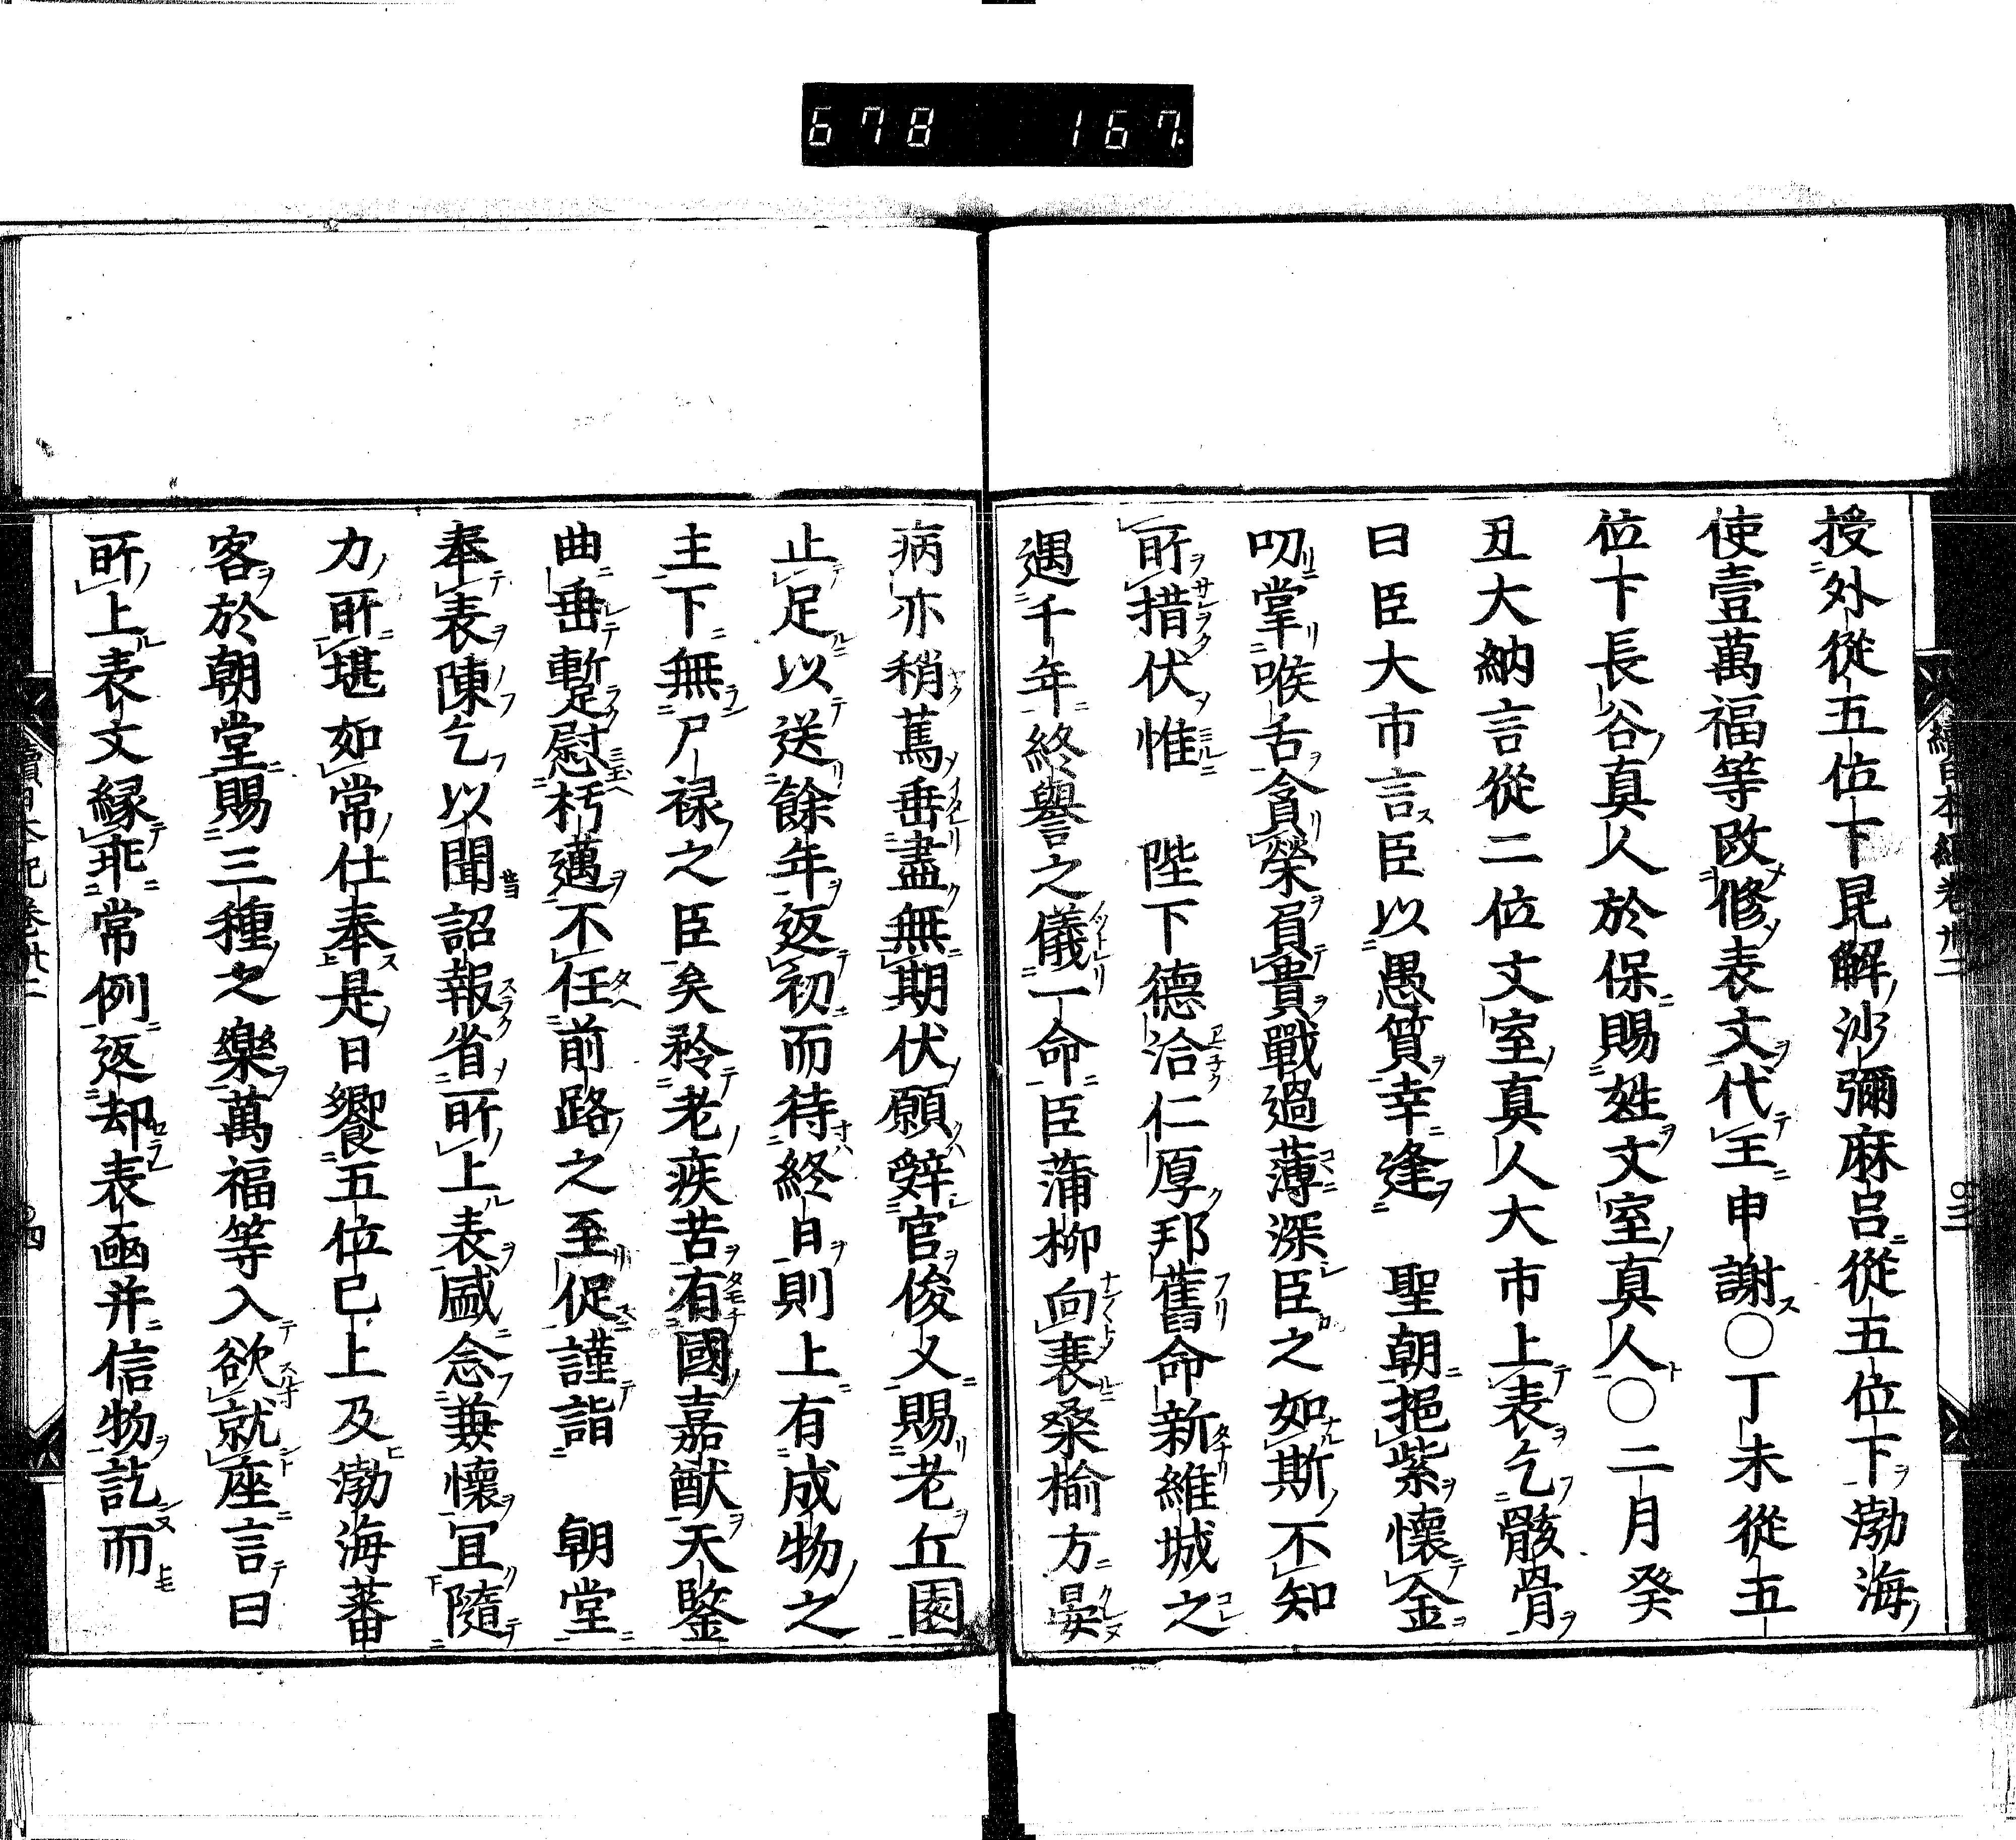 678 167
授外從五位下昆解沙彌麻呂從五位下渤海
使壹萬福等改修表文代王申謝〇丁未從五
位下長谷真人於保賜姓文室真人〇二月癸
丑大納言從二位文室真人大市上表乞骸骨
曰臣大市言臣以愚質幸逢　聖朝拖紫懷金
叨掌喉舌貪榮負貴戰過薄深臣之如斯不知
所措伏惟　陛下德洽仁厚邦舊命新維城之
遇千年終譽之儀一命臣蒲柳向衰桑榆方晏
病亦稍篤垂盡無期伏願辤官俊乂賜老丘園
止足以送餘年返初而待終日則上有成物之
主下無尸祿之臣矣矜老疾苦有國嘉猷天鑒
曲垂暫慰朽邁不任前路之至促謹詣　朝堂
奉表陳乞以聞詔報省所上表感念兼懷宜隨
力所堪如常仕奉是日饗五位已上及渤海蕃
客於朝堂賜三種之樂萬福等入欲就座言曰
所上表文緣乖常例返却表函并信物訖而